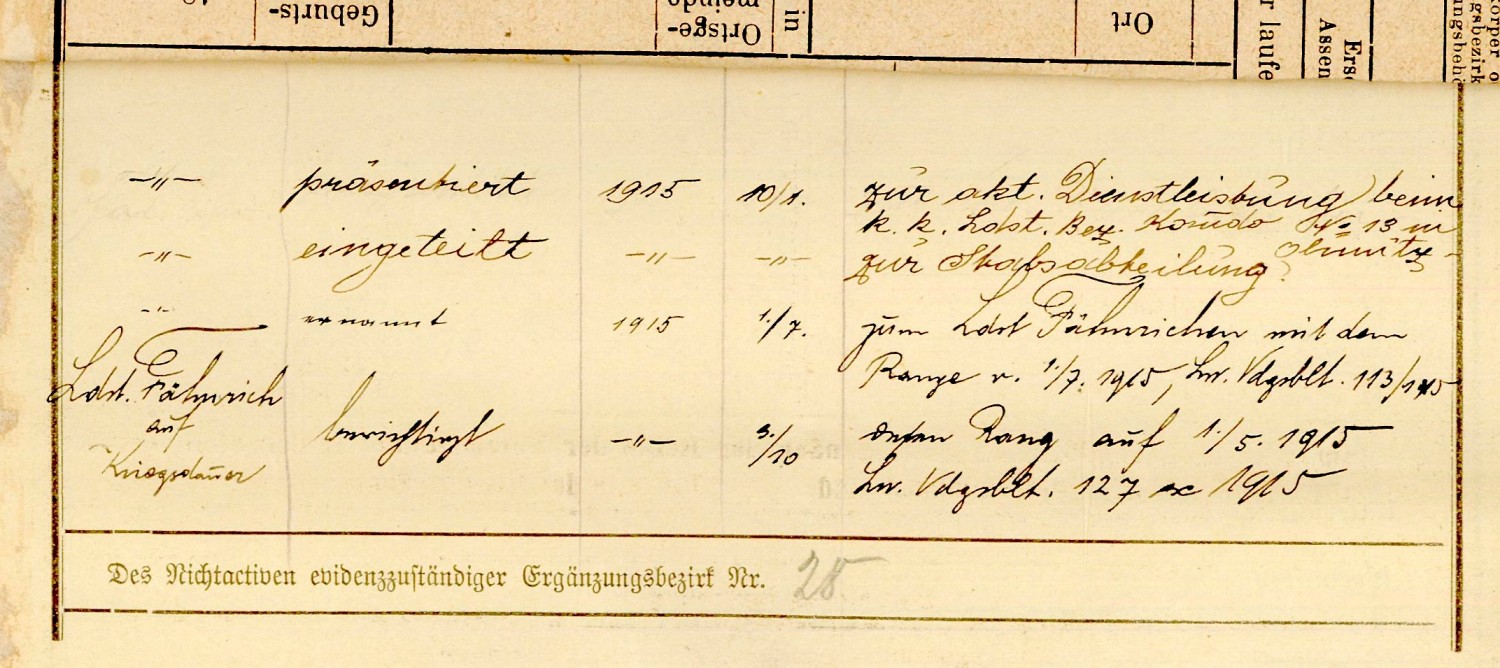 Geburts-
Ortsge-
meinde
in
Ort
r laufe
Assen
Ersc
ungsbehö
gsbezirk
körper o
–„– präsentiert 1915 10/1. zur akt. Dienstleistung beim
k. k. Ldst. Bez. Komdo No 13 in
Olmütz
–„– eingeteilt –„– –„– zur Stabsabteilung
–„– ernannt 1915 1./7. zum Ldst Fähnrichen mit dem
Range v. 1./7. 1915, Lw. Vdgsblt. 113/915
Ldst. Fähnrich
auf
Kriegsdauer
berichtigt –„– 9./10 dessen Rang auf 1./5. 1915
Lw. Vdgsblt. 127 ex 1915
Des Nichtactiven evidenzzuständiger Ergänzungsbezirk Nr. 28